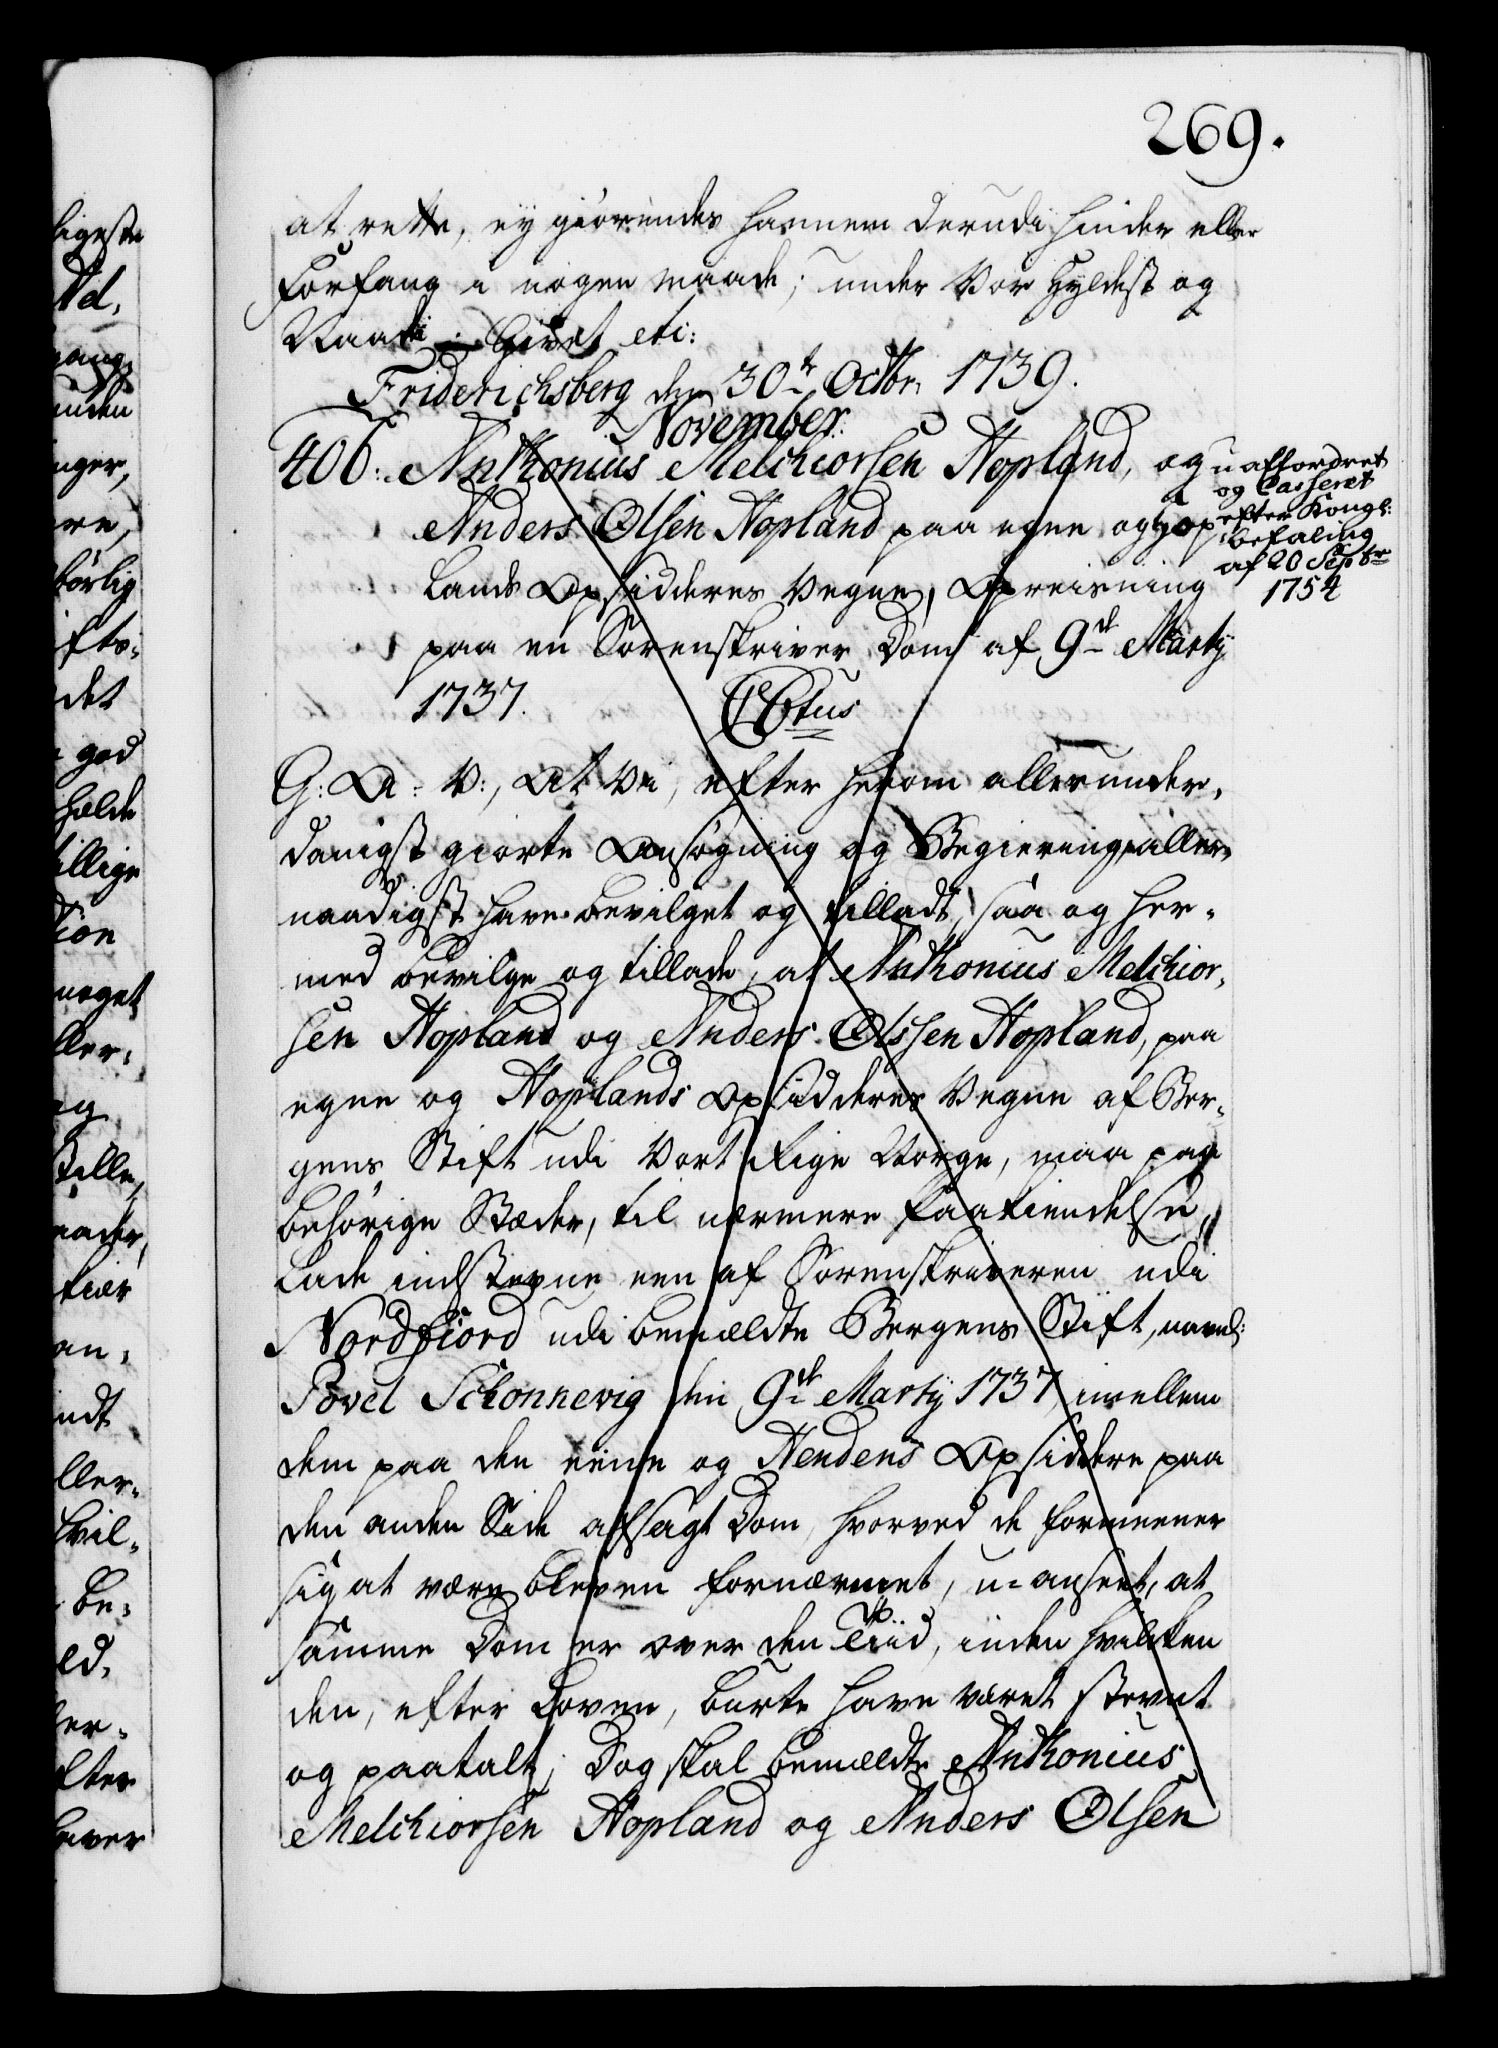 269.
at rette, ey giörendes hannem derudi hinder eller
Forfang i nogen maade; under Vor Hyldest og
Naade. Givet etc:
Friderichsberg den 30te Octbr. 1739.
November.
406. Anthonius Melchiorsen Hopland, og
Anders Olsen Hopland paa egne og Hop
lands Opsidderes Vegne, Opreisning
paa en Sorenskriver Dom af 9de Martij
1737.
uaffordret
og Casseret
efter Kongl:
befaling
af 20 Sepbr
1754
C6tus
G: A: V:, At Vi, efter herom allerunder-
danigst giorte Ansøgning og Begiering, aller-
naadigst have bevilget og tilladt, saa og her-
med bevilge og tillade, at Anthonius Melchior-
sen Hopland og Anders Olssen Hopland, paa
egne og Hoplands Opsidderes Vegne af Ber-
gens Stift udi Vort Rige Norge, maa paa
behörige Stæder, til nærmere Paakiendelse,
lade indstevne een af Sorenskriveren udi
Nordfiord udi bemældte Bergens Stift, navnl:
Povel Schonnevig den 9de Martij 1737, imellem
dem paa den eene og Hendens Opsiddere paa
den anden Side afsagt Dom, hvorved de formeener
sig at være bleven fornærmet, u-anseet, at
samme Dom er over den Tiid, inden hvilken
den, efter Loven, burte have været stevnt
og paatalt; Dog skal bemældte Anthonius
Melchiorsen Hopland og Anders Olsen
ligeste
ud
enger,
börlig
det
god
holde
tillige
tion
noget
ller-
og
stille,
an-
ndt
ller-
bevil-
be-
ld,
er-
efter